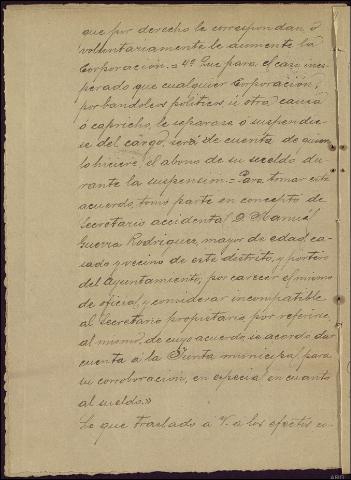 que por derecho le correspondan ó
voluntariamente le aumente la
Corporación.=4º Que para el caso ines-
perado que cualquier Corporación,
por bandolos políticos ú otra causa
ó capricho, le separase ó suspendie-
se del cargo, será de cuenta de quien
lo hiciere, el abono de su sueldo du-
rante la suspensión.=Para tomar este
acuerdo, tomo parte en concepto de
Secretario accidental D. Manuel
Guerra Rodríguez, mayor de edad, ca-
sado y vecino de este distrito, y portero
del Ayuntamiento, por carecer el mismo
de oficial, y considerar incompatible
al Secretario propietario por referirse
al mismo, de cuyo acuerdo se acordo dar
cuenta á la Junta municipal para
su corroboración, en especial en cuanto
al sueldo.»
Lo que traslado á V. á los efectos co-